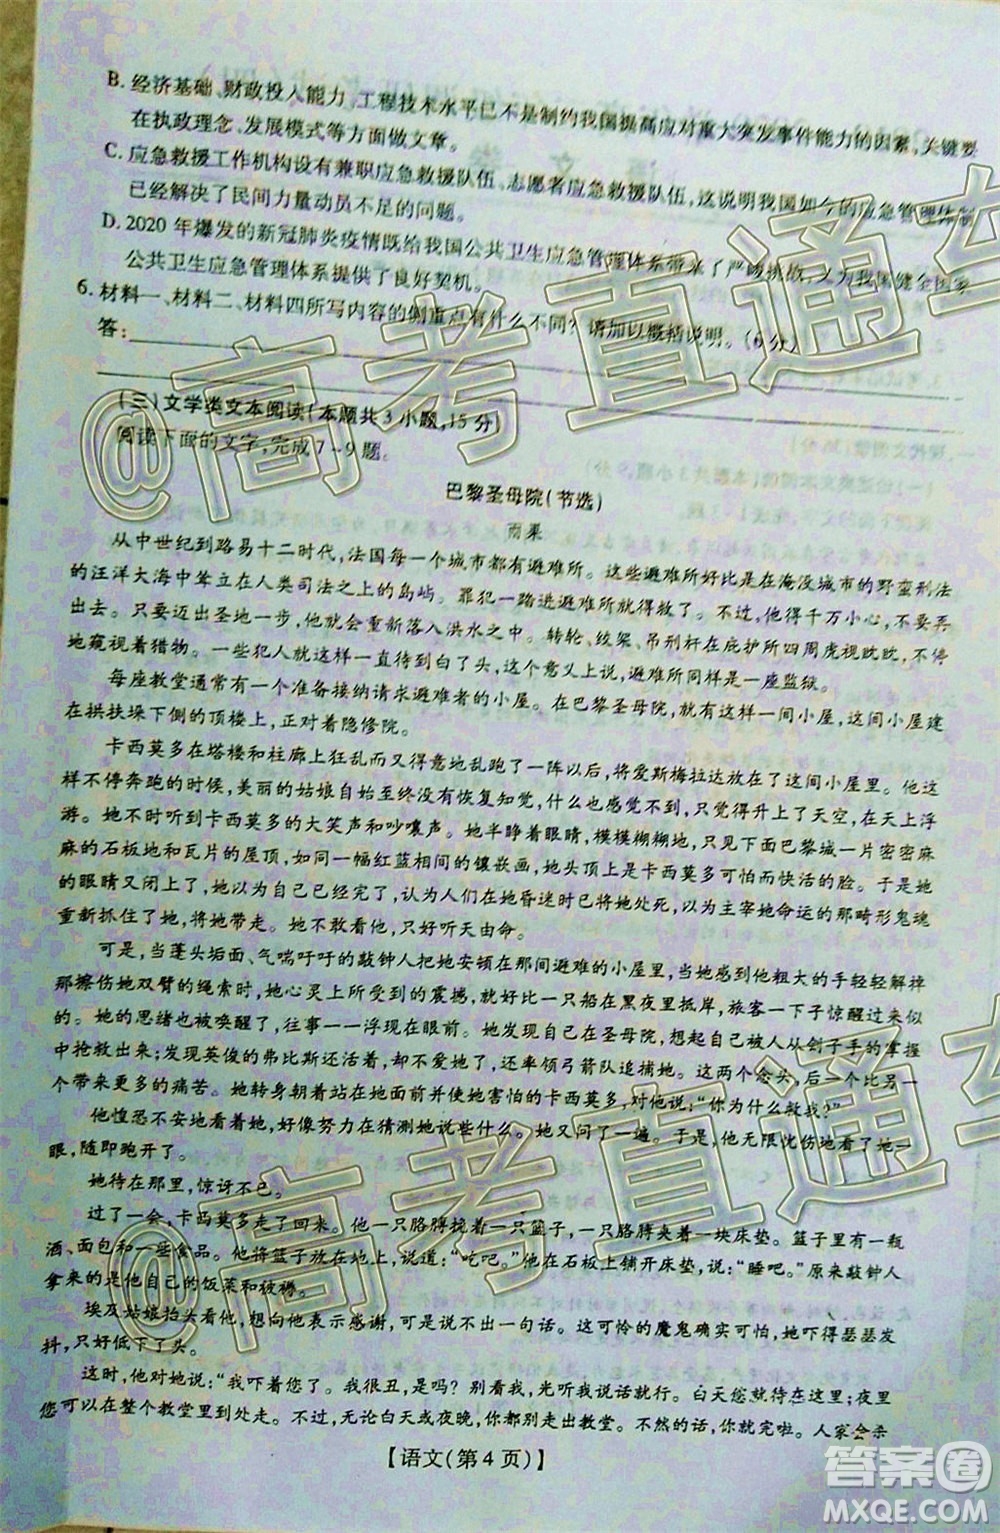 B. 经济基础、财政投入能力、工程技术水平已不是制约我国提高应对重大突发事件能力的因素,关键要
在执政理念、发展模式等方面做文章。
C. 应急救援工作机构设有兼职应急救援队伍、志愿者应急救援队伍,这说明我国如今的应急管理体制
已经解决了民间力量动员不足的问题。
D. 2020 年爆发的新冠肺炎疫情既给我国公共卫生应急管理体系带来了严峻挑战,又为我国健全国家
公共卫生应急管理体系提供了良好契机。
6. 材料一、材料二、材料四所写内容的侧重点有什么不同?请加以概括说明。(6 分)
答:
(三)文学类文本阅读(本题共 3 小题,15 分)
阅读下面的文字,完成 7~9 题。
巴黎圣母院(节选)
雨果
从中世纪到路易十二时代,法国每一个城市都有避难所。这些避难所好比是在淹没城市的野蛮刑法
的汪洋大海中耸立在人类司法之上的岛屿。罪犯一踏进避难所就得救了。不过,他得千万小心,不要再
出去。只要迈出圣地一步,他就会重新落入洪水之中。转轮、绞架、吊刑杆在庇护所四周虎视眈眈,不停
地窥视着猎物。一些犯人就这样一直待到白了头,这个意义上说,避难所其实是一座监狱。
每座教堂通常有一个准备接纳请求避难者的小屋。在巴黎圣母院,就有这样一间小屋,这小屋建
在拱扶垛下侧的顶楼上,正对着隐修院。
卡西莫多在塔楼和柱廊上狂乱而又得意地乱跑了一阵以后,将爱斯梅拉达放在了这间小屋里。在这
样不停奔跑的时候,美丽的姑娘自始至终没有恢复知觉,昏昏沉沉,只觉得升上了天空,在天上浮
游。她不时听到卡西莫多的大笑声和吵嚷声。她半睁着眼睛,模模糊糊地,只见下面巴黎城一片密密麻
麻的石板地和瓦片的屋顶,如同一幅红蓝相间的镶嵌画,她头顶上是卡西莫多可怕而快活的脸。于是她
的眼睛又闭上了,她以为自己已经完了,认为人们在她昏迷时已将她处死,以为主宰她命运的那畸形鬼魂
重新抓住了她,将她带走。她不敢看他,只好听天由命。
可是,当蓬头垢面、气喘吁吁的敲钟人把她安顿在那间避难的小屋里,当她感觉到他粗大的手轻轻解掉
那擦伤她双臂的绳索时,她心灵上所受到的震撼,就像一只船在黑夜里抵岸,旅客一下子惊醒过来似
的。她的思绪也被唤醒了,往事一一浮现在眼前。她发现自己在圣母院,她想起自己从刽子手的掌握
中抢救出来;发现英俊的弗比斯还活着,却不爱她了,还率领弓箭队追捕她。这两个念头,后一个
给她带来了更多的痛苦。她转身朝着站在她面前并使她害怕的卡西莫多,对他说:“你为什么救我?”
他惶恐不安地看着她,好像努力在猜测她说些什么。她又问了一遍。于是,他无限忧伤地看了她一
眼,随即跑开了。
她待在那里,惊讶不已。
过了一会,卡西莫多走了回来。他一只胳膊挽着一只篮子,一只胳膊夹着一块床垫。篮子里有一瓶
酒、面包和一些食品。他将篮子放在地上,说道:“吃吧。”他在石板上铺开床垫,说:“睡吧。”原来敲钟人
拿来的是他自己的饭菜和被褥。
埃及姑娘抬头看他,想向他表示感谢,可是说不出一句话。这可怜的魔鬼确实可怕,她吓得瑟瑟发
抖,只好低下了头。
这时,他对她说:“我吓着您了。我很丑,是吗?别看我,光听我说话就行。白天您就待在这里;夜里
您可以在整个教堂里到处走。不过,无论白天或夜晚,你都别走出教堂。不然的话,你就完啦。人家会杀
【语文(第 4 页)】
@高考直通车
@高考直通车
答案圈
MXQE.COM